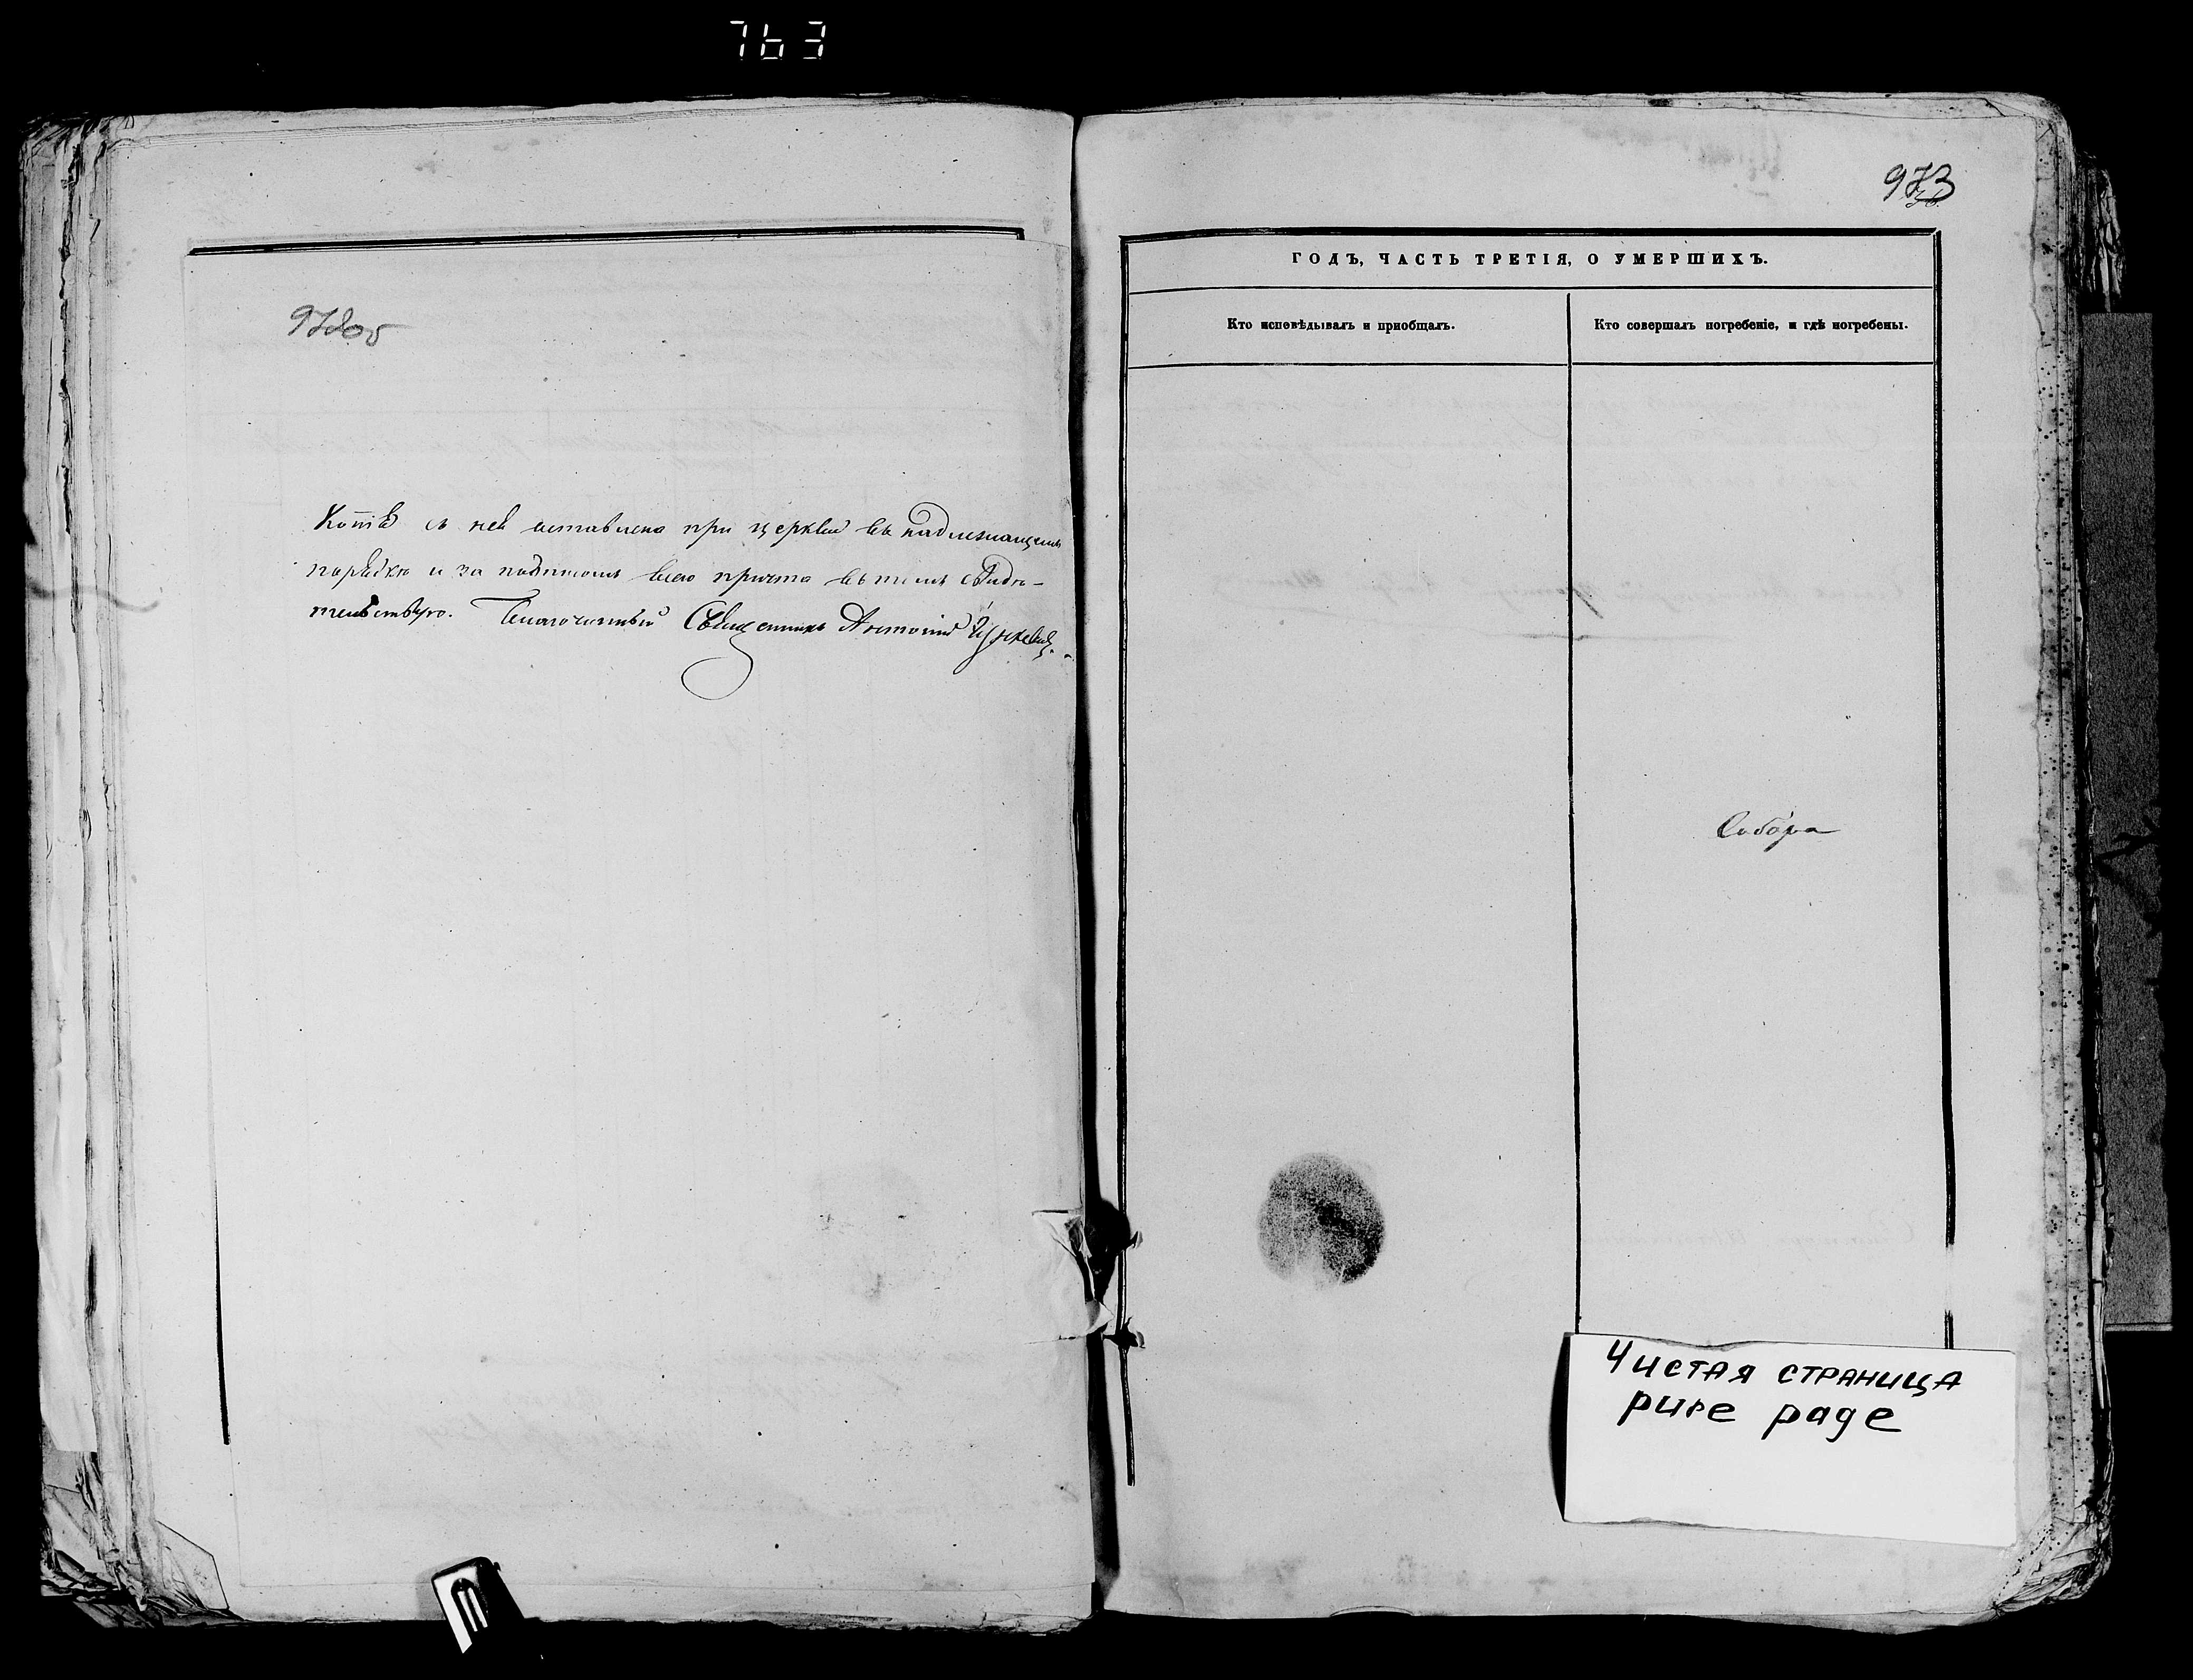 763
972об
Копія съ нея оставлена при церкви въ надлежащемъ
порядкѣ и за подписомъ всего причта въ томъ свидѣ-
тельствую. Благочинный Священникъ Антоній
973
ГОДЪ, ЧАСТЬ ТРЕТІЯ, О УМЕРШИХЪ.
Кто исповѣдывалъ и пріобщалъ.
Кто совершалъ погребеніе, и гдѣ погребены.
Собора
Чистая страница
pure page